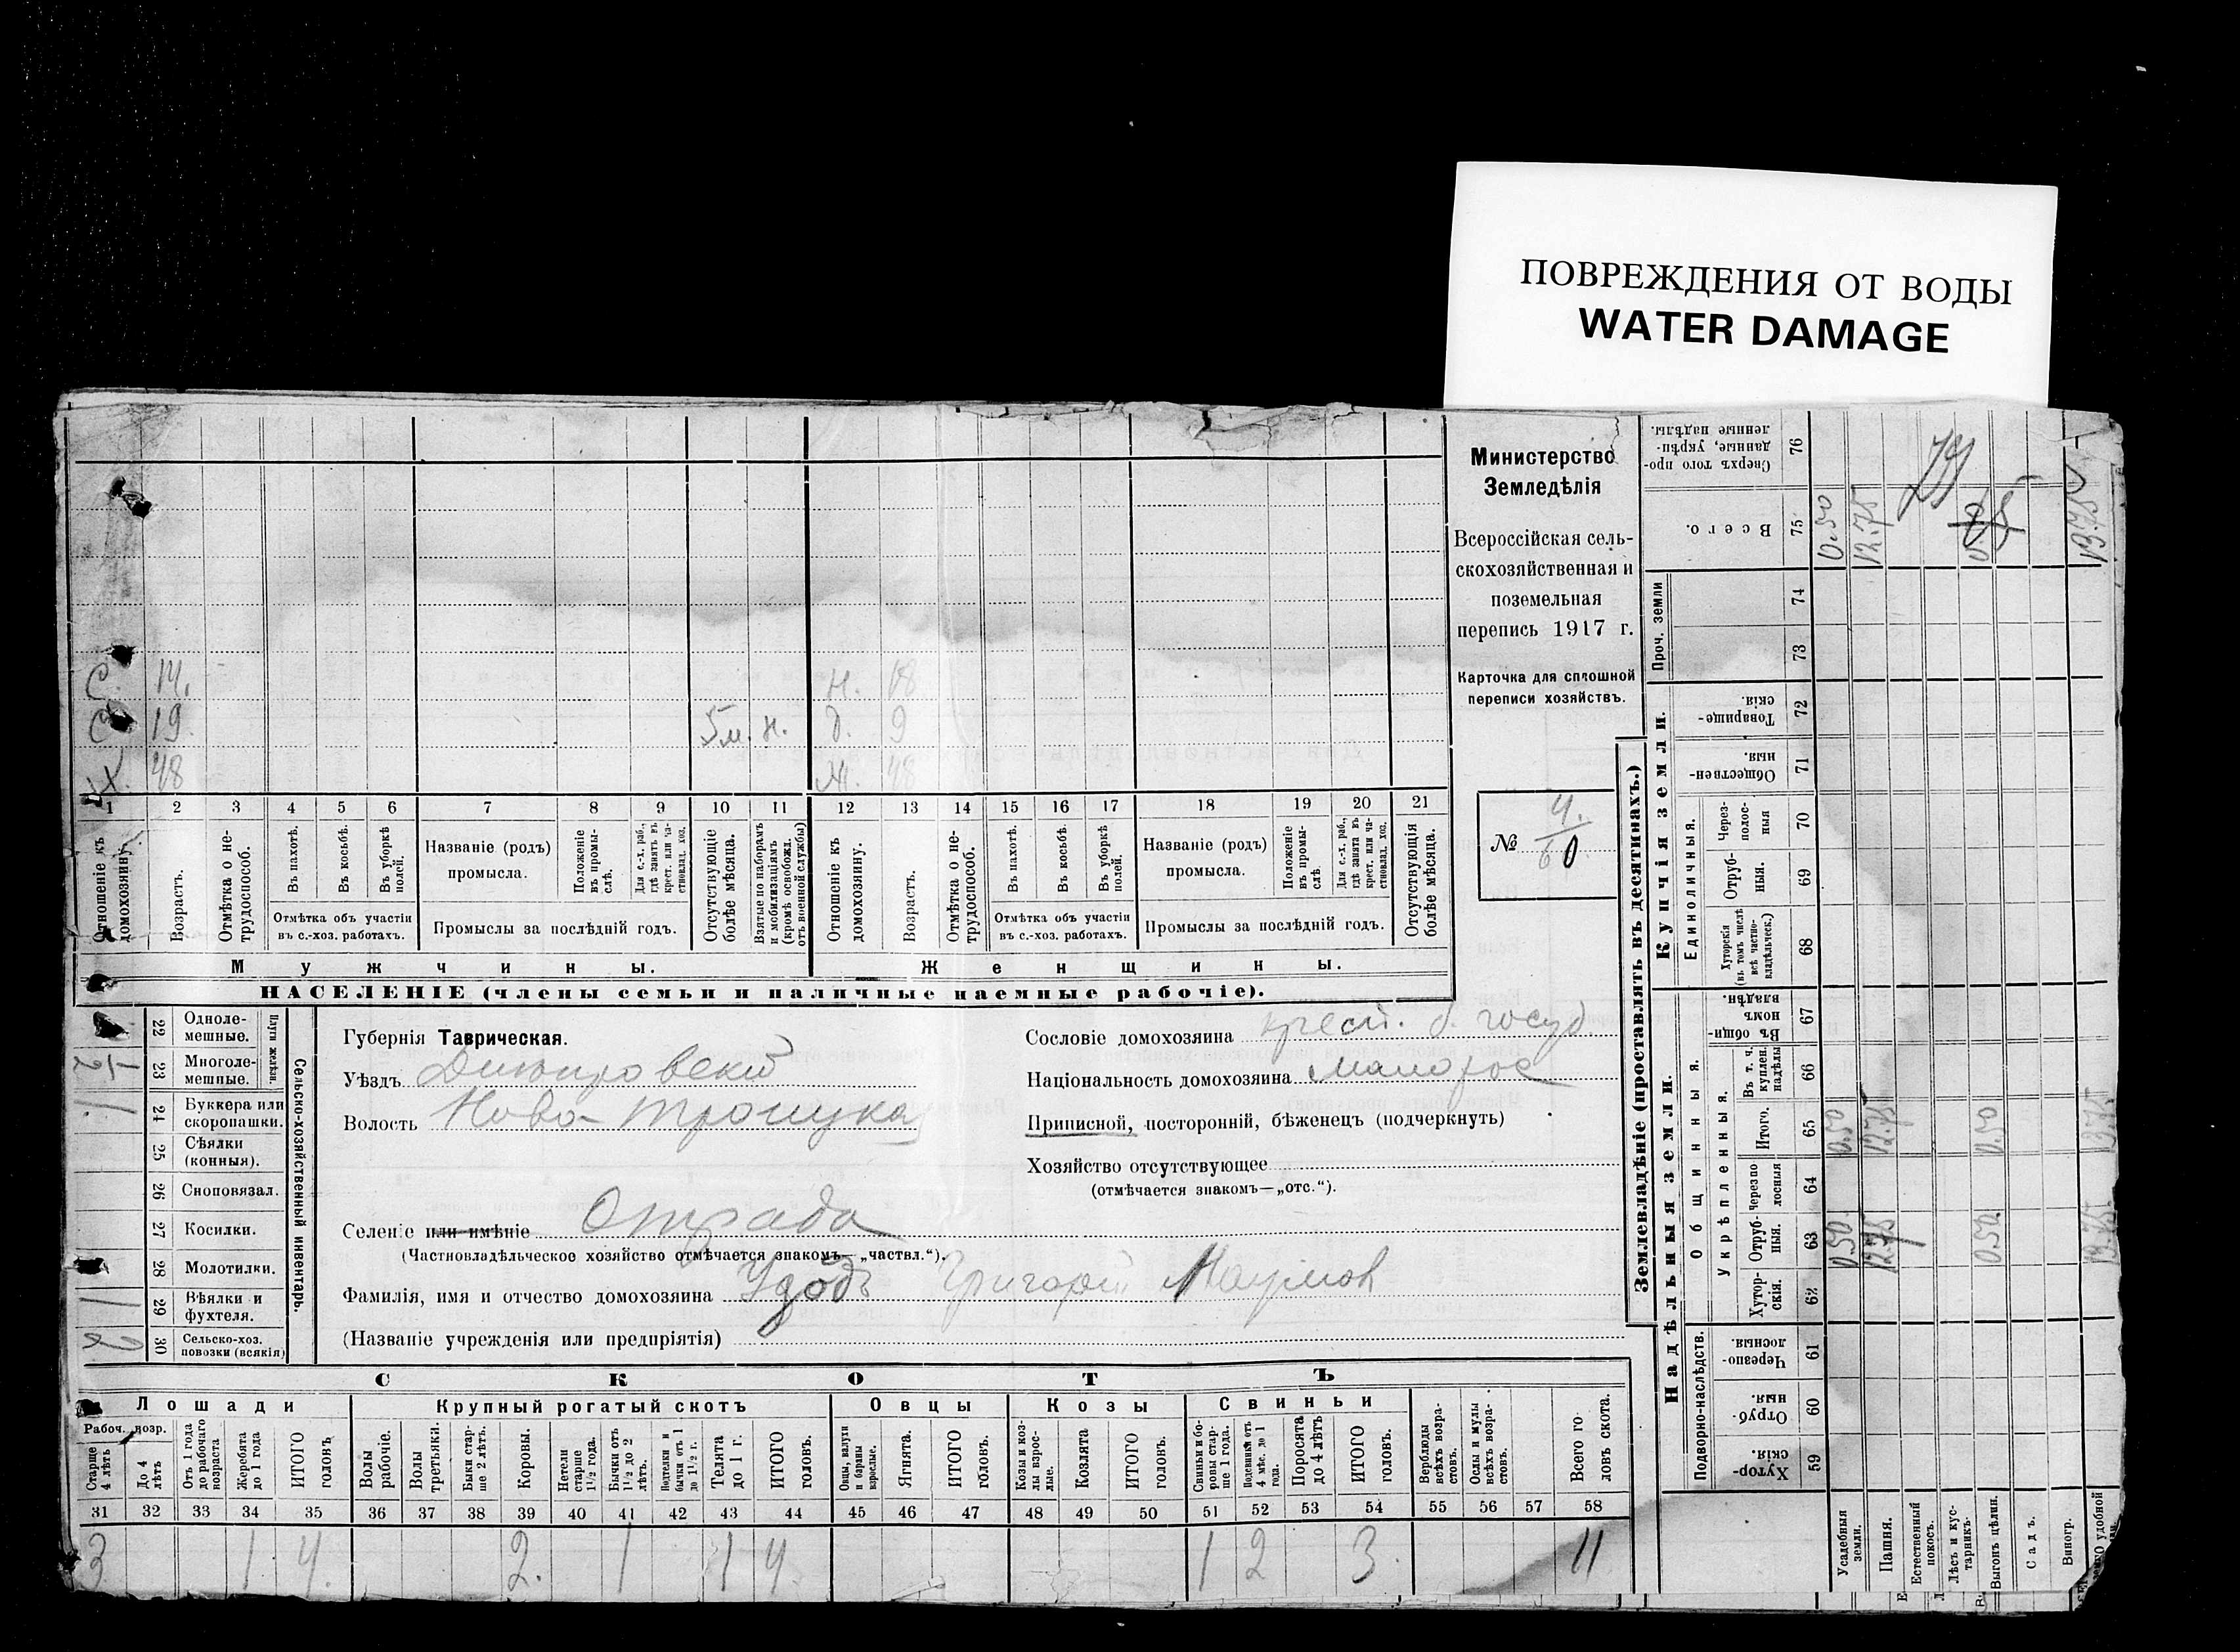 ПОВРЕЖДЕНИЯ ОТ ВОДЫ
WATER DAMAGE
Министерство
Земледѣлія
Всероссійская сель-
скохозяйственная и
поземельная
перепись 1917 г.
Карточка для сплошной
переписи хозяйствъ.
№ 4. 60
С. 14. н. 18
С 19. 5 м. н. д. 9
Х. 48 Ж. 48
1 2 3 4 5 6 7 8 9 10 11 12 13 14 15 16 17 18 19 20 21
Отношеніе къ домохозяину.
Возрастъ.
Отмѣтка о не-трудоспособ.
Въ пахотѣ.
Въ косьбѣ.
Въ уборкѣ полей.
Отмѣтка объ участіи
въ с.-хоз. работахъ.
Названіе (родъ)
промысла.
Положеніе въ промы-слѣ.
Для с.-х. раб., гдѣ занятъ въ крест. или ча-стновлад. хоз.
Промыслы за послѣдній годъ.
Отсутствующіе болѣе мѣсяца.
Взятые по наборамъ и мобилизаціямъ (кромѣ освобожд. отъ военной службы)
Отношеніе къ домохозяину.
Возрастъ.
Отмѣтка о не-трудоспособ.
Въ пахотѣ.
Въ косьбѣ.
Въ уборкѣ полей.
Отмѣтка объ участіи
въ с.-хоз. работахъ.
Названіе (родъ)
промысла.
Положеніе въ промы-слѣ
Для с.-х. раб., гдѣ занята въ крест. или ча-стновлад. хоз.
Промыслы за послѣдній годъ.
Отсутствующія болѣе мѣсяца.
Мужчины. Женщины.
НАСЕЛЕНІЕ (члены семьи и наличные наемные рабочіе).
Сельско-хозяйственный инвентарь.
Плуги желѣзн.
22 Однолемешные.
23 Многолемешные. 1/2
24 Буккера или скоропашки. 1
25 Сѣялки (конныя).
26 Сноповязал.
27 Косилки.
28 Молотилки.
29 Вѣялки и фухтеля. 1
30 Сельско-хоз. повозки (всякія) 2
Губернія Таврическая.
Уѣздъ Днѣпровскій
Волость Ново-Троицкая
Селеніе или имѣніе Отрада
(Частновладѣльческое хозяйство отмѣчается знакомъ—„частвл.“).
Фамилія, имя и отчество домохозяина Удодъ Григорій Наумов
(Названіе учрежденія или предпріятія)
Сословіе домохозяина крест. б. госуд
Національность домохозяина малорос
Приписной, посторонній, бѣженецъ (подчеркнуть)
Хозяйство отсутствующее
(отмѣчается знакомъ—„отс.“).
СКОТЪ
Лошади Крупный рогатый скотъ Овцы Козы Свиньи
Рабоч. возр.
Старше 4 лѣтъ
До 4 лѣтъ
Отъ 1 года до рабочаго возраста
Жеребята до 1 года
ИТОГО головъ
Волы рабочіе.
Волы третьяки.
Быки стар-ше 2 лѣтъ.
Коровы.
Нетели старше 1½ года.
Бычки отъ 1½ до 2 лѣтъ.
Подтелки и бычки отъ 1 до 1½ г.
Телята до 1 г.
ИТОГО головъ.
Овцы, валухи и бараны взрослые.
Ягнята.
ИТОГО головъ.
Козы и коз-лы взрос-лые.
Козлята
ИТОГО головъ.
Свиньи и бо-ровы стар-ше 1 года.
Подсвинки отъ 4 мѣс. до 1 года.
Поросята до 4 лѣтъ
ИТОГО головъ.
Верблюды всѣхъ возра-стовъ.
Ослы и мулы всѣхъ возра-стовъ.
Всего го-ловъ скота.
31 32 33 34 35 36 37 38 39 40 41 42 43 44 45 46 47 48 49 50 51 52 53 54 55 56 57 58
3 1 4. 2. 1 1 4. 1 2 3. 11
Землевладѣніе (проставлять въ десятинахъ.)
Надѣльныя земли. Купчія земли. Проч. земли
Подворно-наслѣдств. Общинныя. Укрѣпленныя. Единоличныя.
59 Хутор-скія.
60 Отруб-ныя.
61 Черезпо-лосныя.
62 Хутор-скія.
63 Отруб-ныя.
64 Черезпо-лосныя
65 Итого.
66 Въ т. ч. куплен. надѣлы
67 Въ общин-номъ владѣн.
68 Хуторскія (въ томъ числѣ всѣ частно-владѣльческ.)
69 Отруб-ныя.
70 Через-полос-ныя
71 Обществен-ныя.
72 Товарище-скія
73
74
75 Всего.
76 Сверхъ того про-данные, укрѣп-ленные надѣлы.
Усадебныя земли. 0.50 0.50 0.50
Пашня. 12.75 12.75 12.75
Естественный покосъ.
Лѣсъ и кус-тарникъ.
Выгонъ цѣлин. 0.50 0.50
Садъ.
Виногр.
удобной 13.75 13.75 13.75